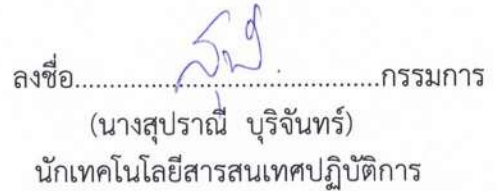 ลงชื่อ....................................................กรรมการ
(นางสุปราณี บุริจันทร์)
นักเทคโนโลยีสารสนเทศปฏิบัติการ